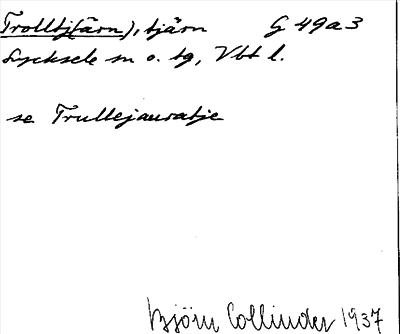 Trolltj(ärn), tjärn G 49a3
Lycksele sn o. tg, Vbt l.
se Trullejauratje
Björn Collinder 1937